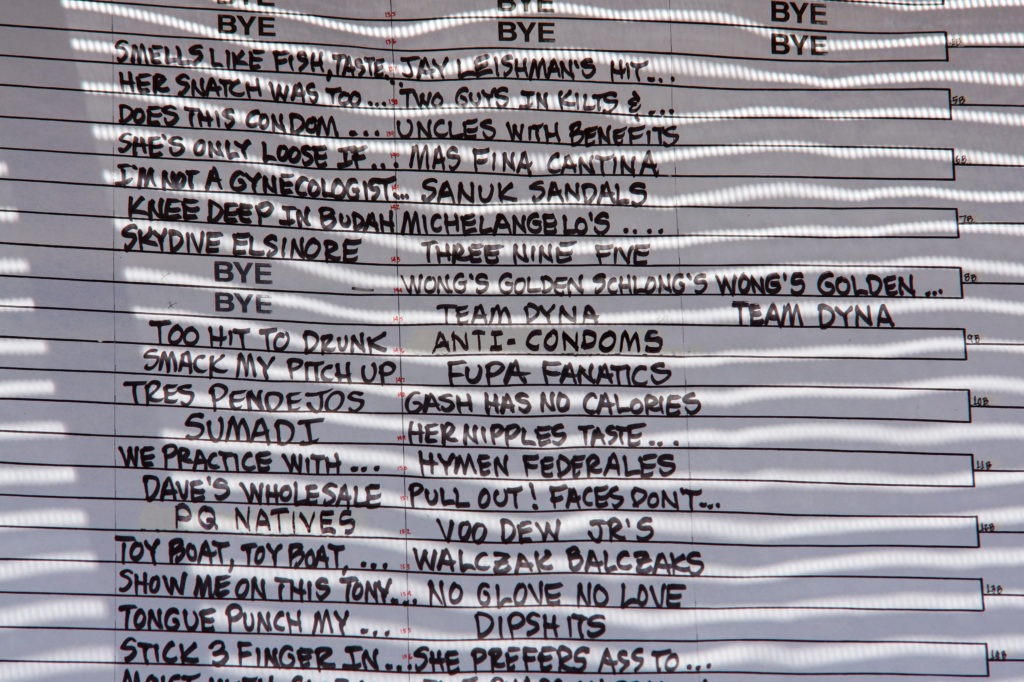 BYE BYE
BYE BYE BYE
SMELLS LIKE FISH, TASTE. JAY LEISHMAN'S HIT...
HER SNATCH WAS TOO ... TWO GUYS IN KILTS & ... 5B
DOES THIS CONDOM .... UNCLES WITH BENEFITS
SHE'S ONLY LOOSE IF ... MAS FINA CANTINA 6B
I'M NOT A GYNECOLOGIST... SANUK SANDALS
KNEE DEEP IN BUDAH MICHELANGELO'S .... 7B
SKYDIVE ELSINORE THREE NINE FIVE
BYE WONG'S GOLDEN SCHLONG'S WONG'S GOLDEN ... 8B
BYE TEAM DYNA TEAM DYNA
TOO HIT TO DRUNK ANTI-CONDOMS 9B
SMACK MY PITCH UP FUPA FANATICS
TRES PENDEJOS GASH HAS NO CALORIES 10B
SUMADI HER NIPPLES TASTE...
WE PRACTICE WITH ... HYMEN FEDERALES 11B
DAVE'S WHOLESALE PULL OUT! FACES DON'T...
PQ NATIVES VOO DEW JR'S 12B
TOY BOAT, TOY BOAT, ... WALCZAK BALCZAKS
SHOW ME ON THIS TONY... NO GLOVE NO LOVE 13B
TONGUE PUNCH MY ... DIPSHITS
STICK 3 FINGER IN ... SHE PREFERS ASS TO ... 14B